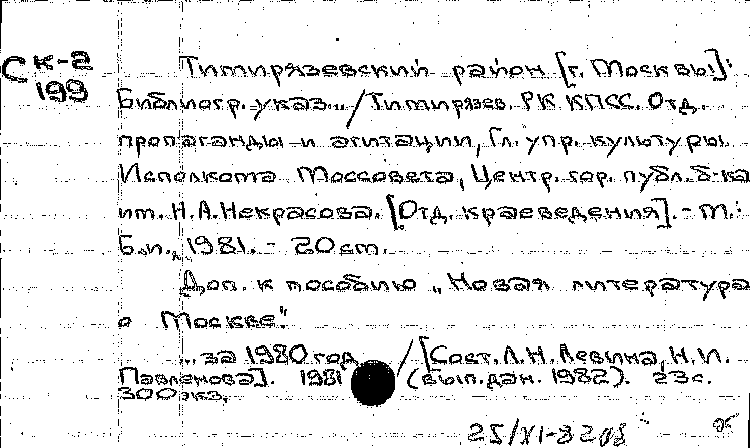 Ск-2
199
Тимирязевский район [г. Москвы]:
Библиогр. указ... / Тимирязев. РК КПСС. Отд.
пропаганды и агитации, Гл. упр. культуры
Исполкома Моссовета, Центр. гор. публ. б-ка
им. Н.А.Некрасова. [Отд. краеведения]. - М.:
Б.и., 1981. - 20 см.
Доп. к пособию „Новая литература
о Москве".
... за 1980 год / [Сост. Л.Н. Левина, Н.И.
Павленова]. 1981 (вып. дан. 1982). 23 с.
300 экз.
25/XI-82